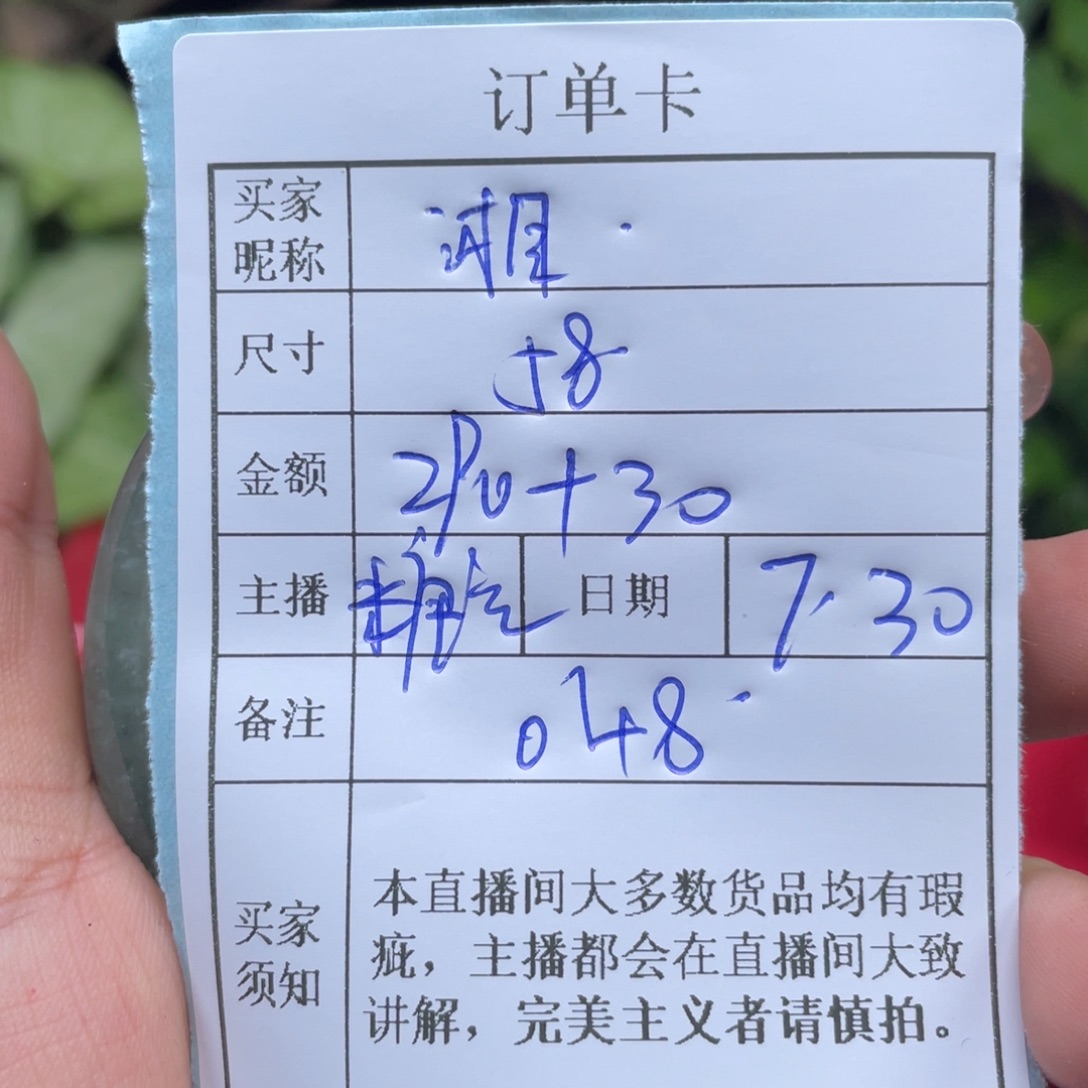 订单卡
买家昵称 湘
尺寸 58
金额 +30
主播 日期 7.30
备注 048
买家须知
本直播间大多数货品均有瑕
疵，主播都会在直播间大致
讲解，完美主义者请慎拍。